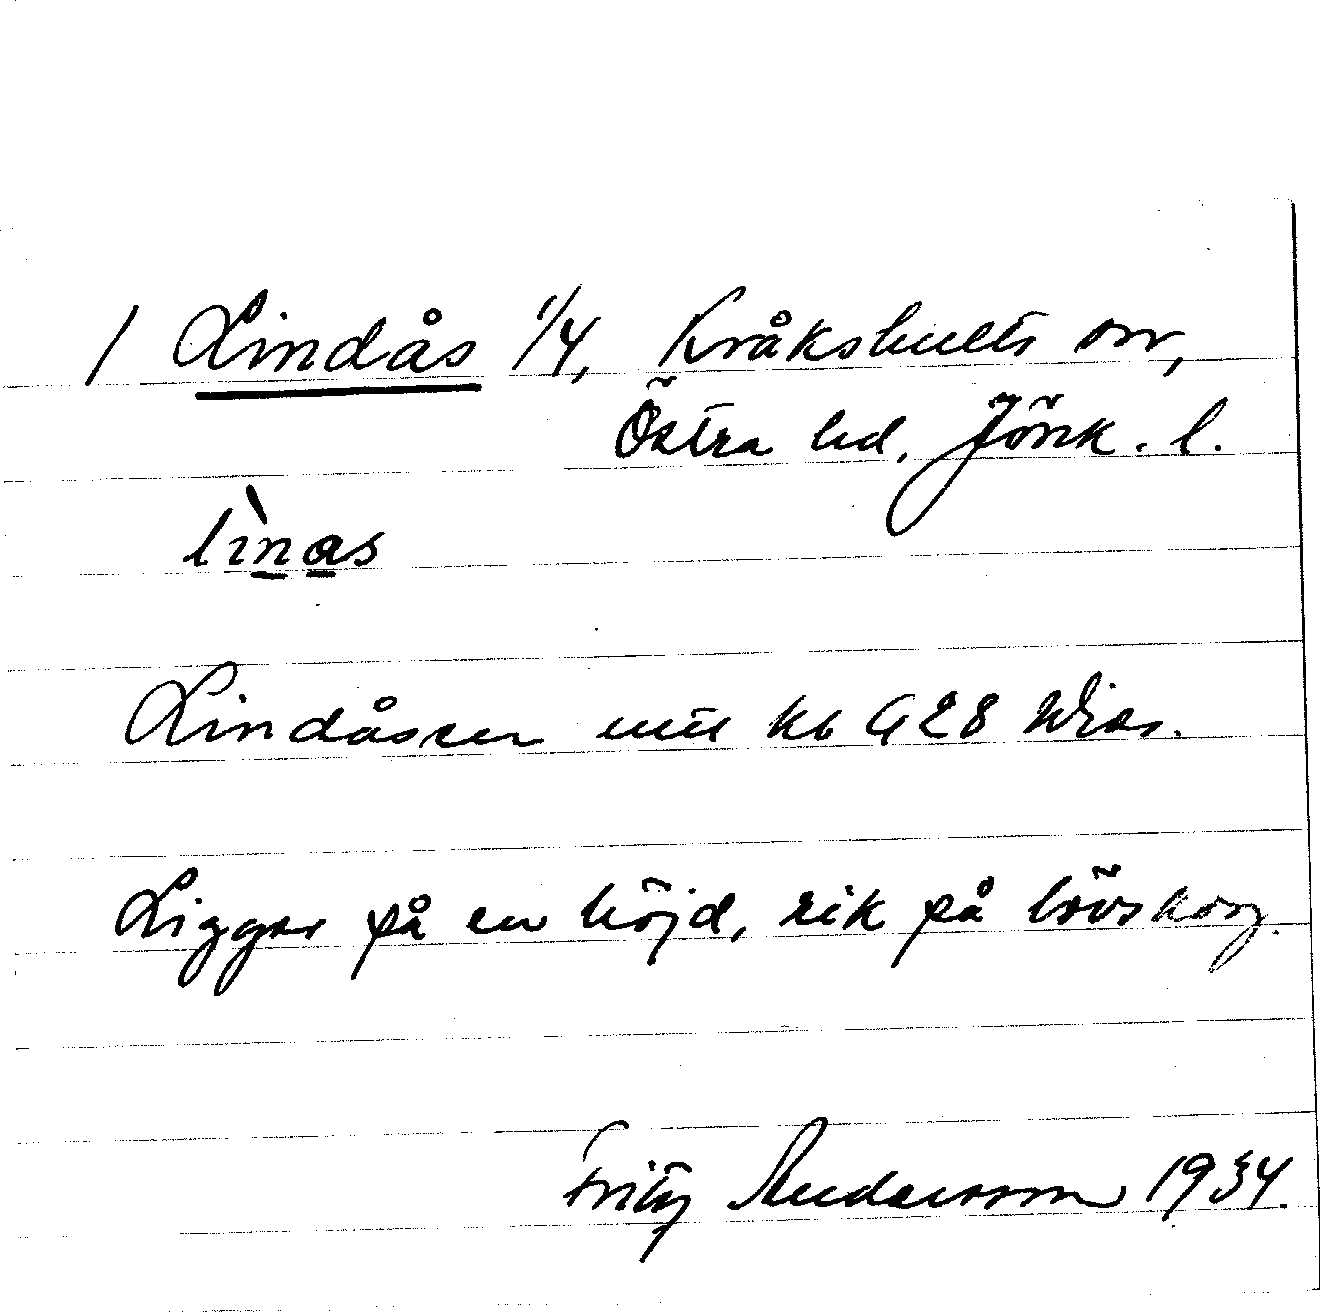 / Lindås 1/4, Kråkshults sn,
Östra hd, Jönk. l.
lìnas
Lindåsen
Ligger på en höjd, rik på lövskog.
Fritz Andersson 1934.